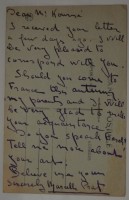 Dear Mr
I received your letter
a few days ago. I will
be very pleased to
correspond with you.
Should you come to
France this autumn
my parents and I will
be very glad to
your acquaintance.
you speak French
Tell me more about
your
Believe me yours
sincerely